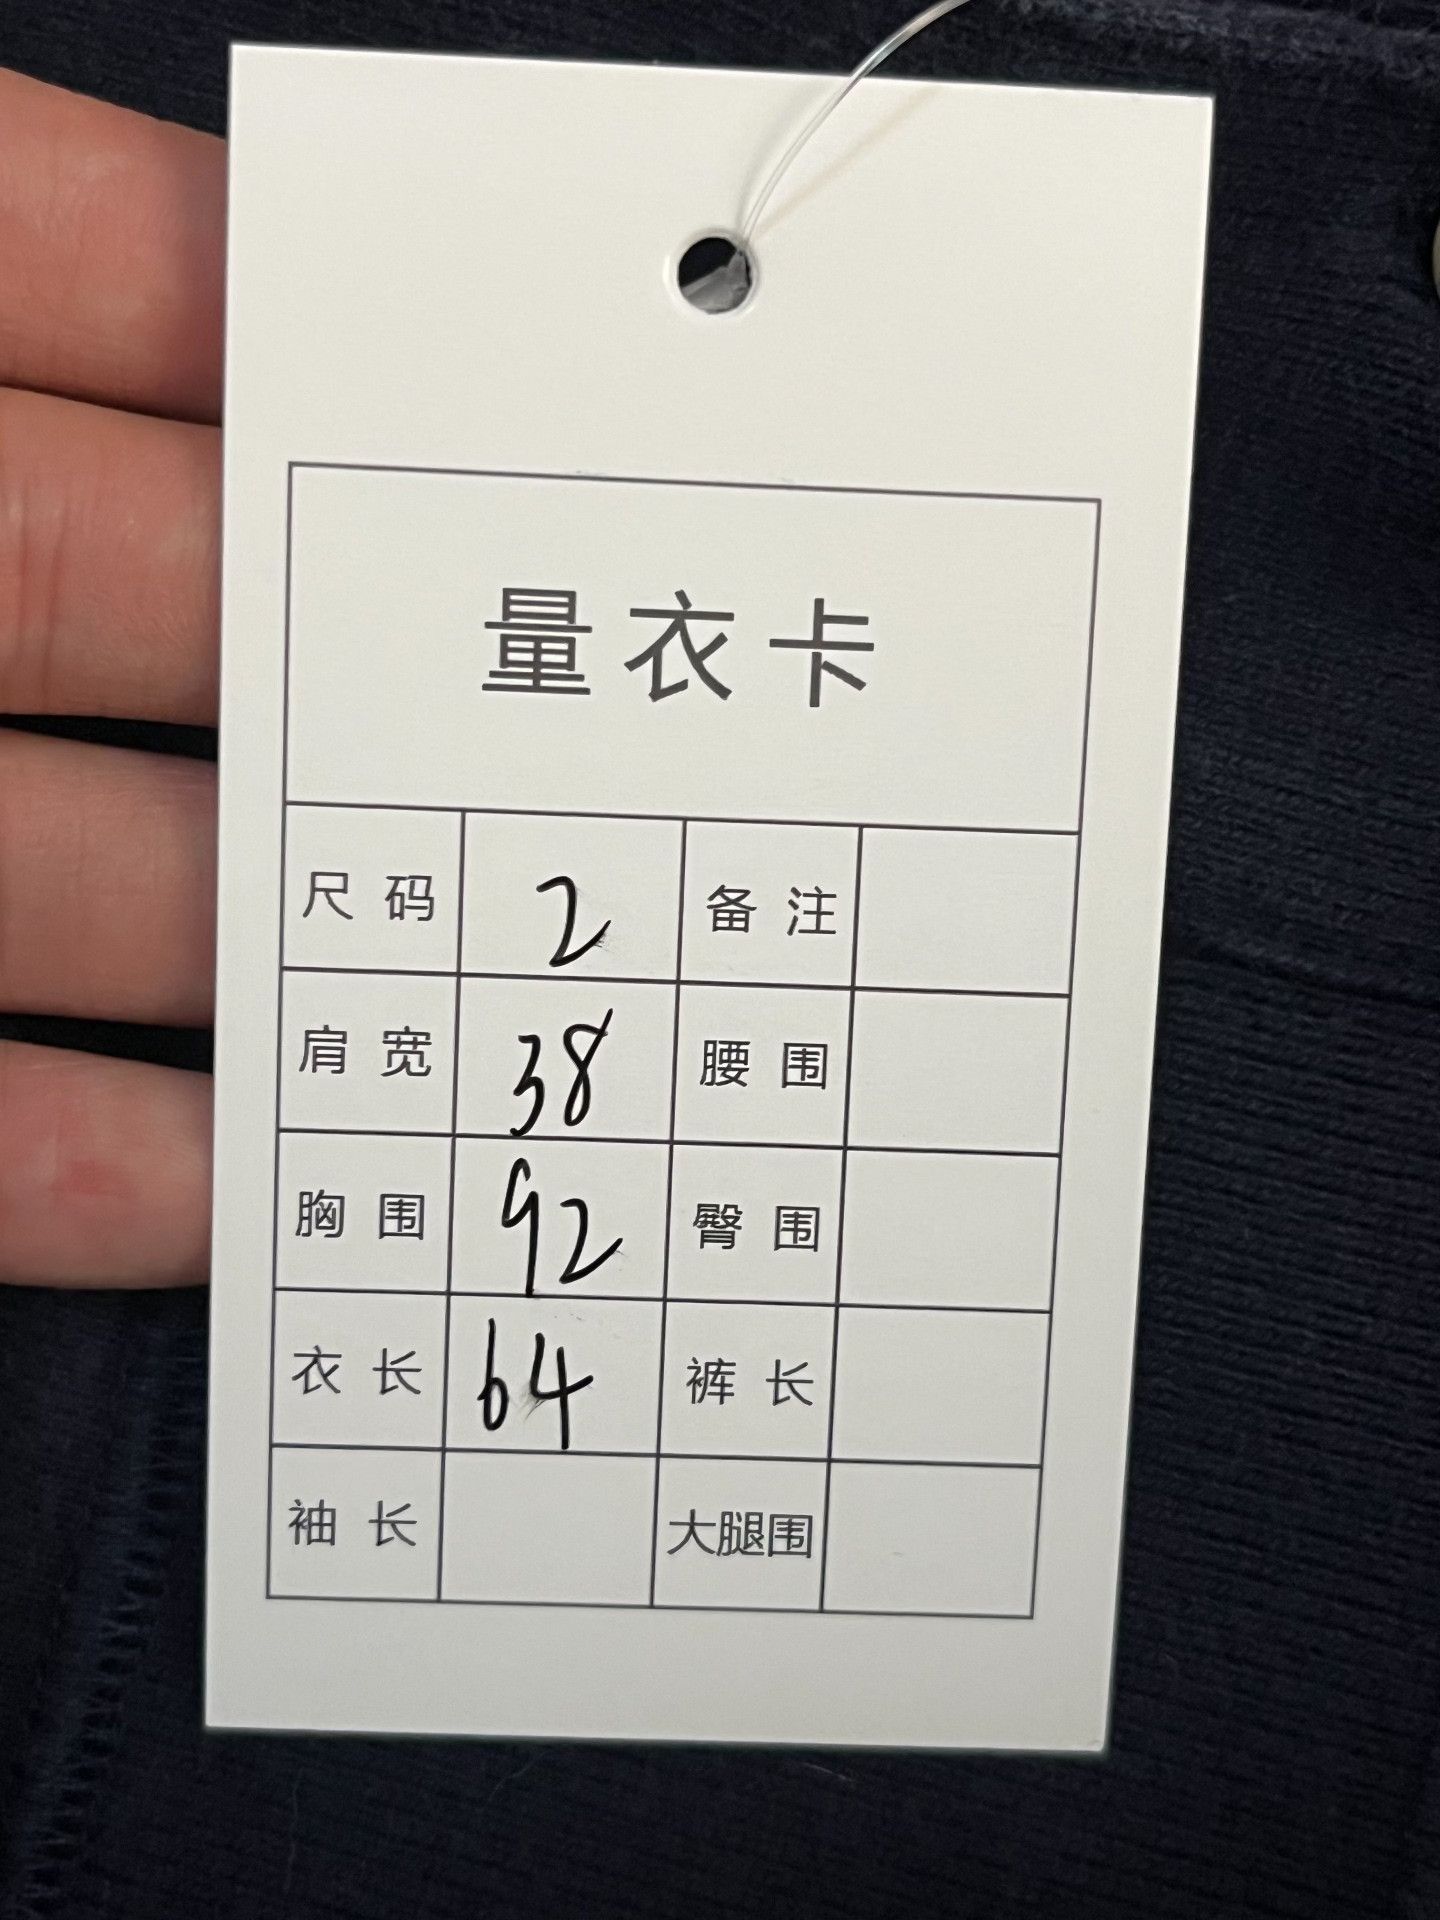 量衣卡
尺码 2 备注
肩宽 38 腰围
胸围 92 臀围
衣长 64 裤长
袖长 大腿围